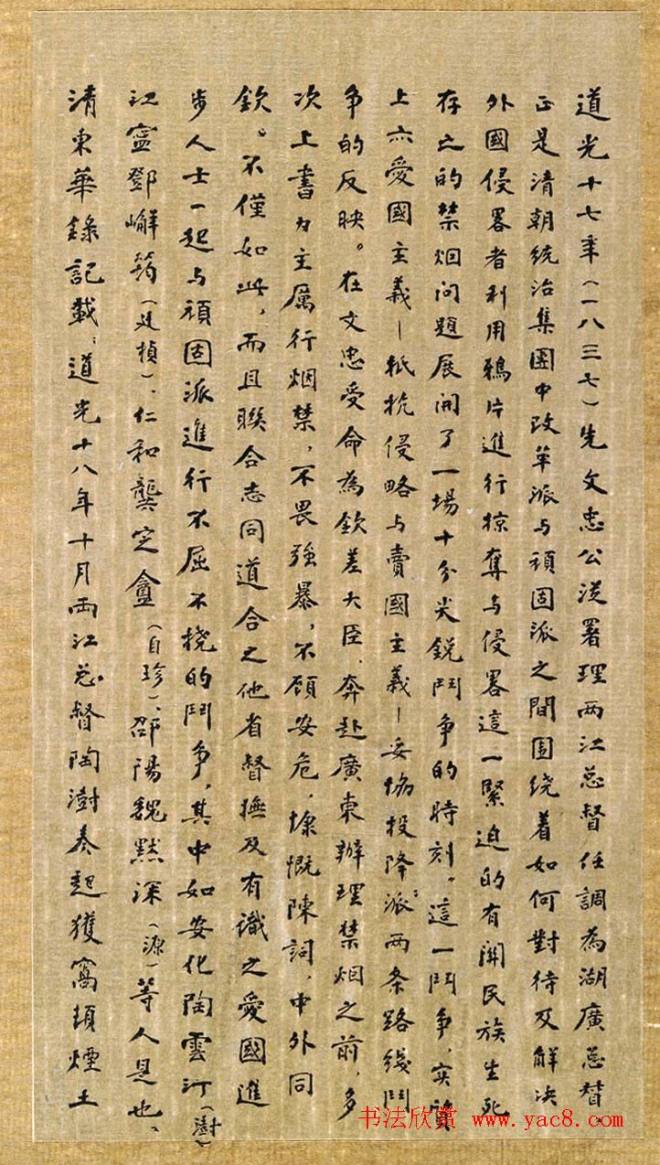 道光十七年(一八三七)先文忠公從署理两江总督任調為湖廣总督
正是清朝統治集團中改革派与頑固派之間围绕着如何對待及解决
外國侵畧者利用鴉片進行掠奪与侵畧這一緊迫的有関民族生死
存亡的禁烟问題展開了一場十分尖銳鬥争的時刻。這一鬥争,实質
上亦愛國主義—抵抗侵略与賣國主義—妥協投降派两条路线鬥
争的反映。在文忠受命為欽差大臣,奔赴廣東辦理禁烟之前,多
次上書力主厲行烟禁,不畏強暴,不顾安危,慷慨陳詞,中外同
欽。不僅如此,而且聯合志同道合之他省督撫及有識之愛國進
步人士一起与頑固派進行不屈不挠的鬥争,其中如安化陶雲汀(澍)
江寧鄧嶰筠(廷楨)、仁和龔定盦(自珍)、邵陽魏黙深(源)等人是也、
清東華錄記載:道光十八年十月两江总督陶澍奏起獲窩頓煙土
书法欣赏 www.yac8.com